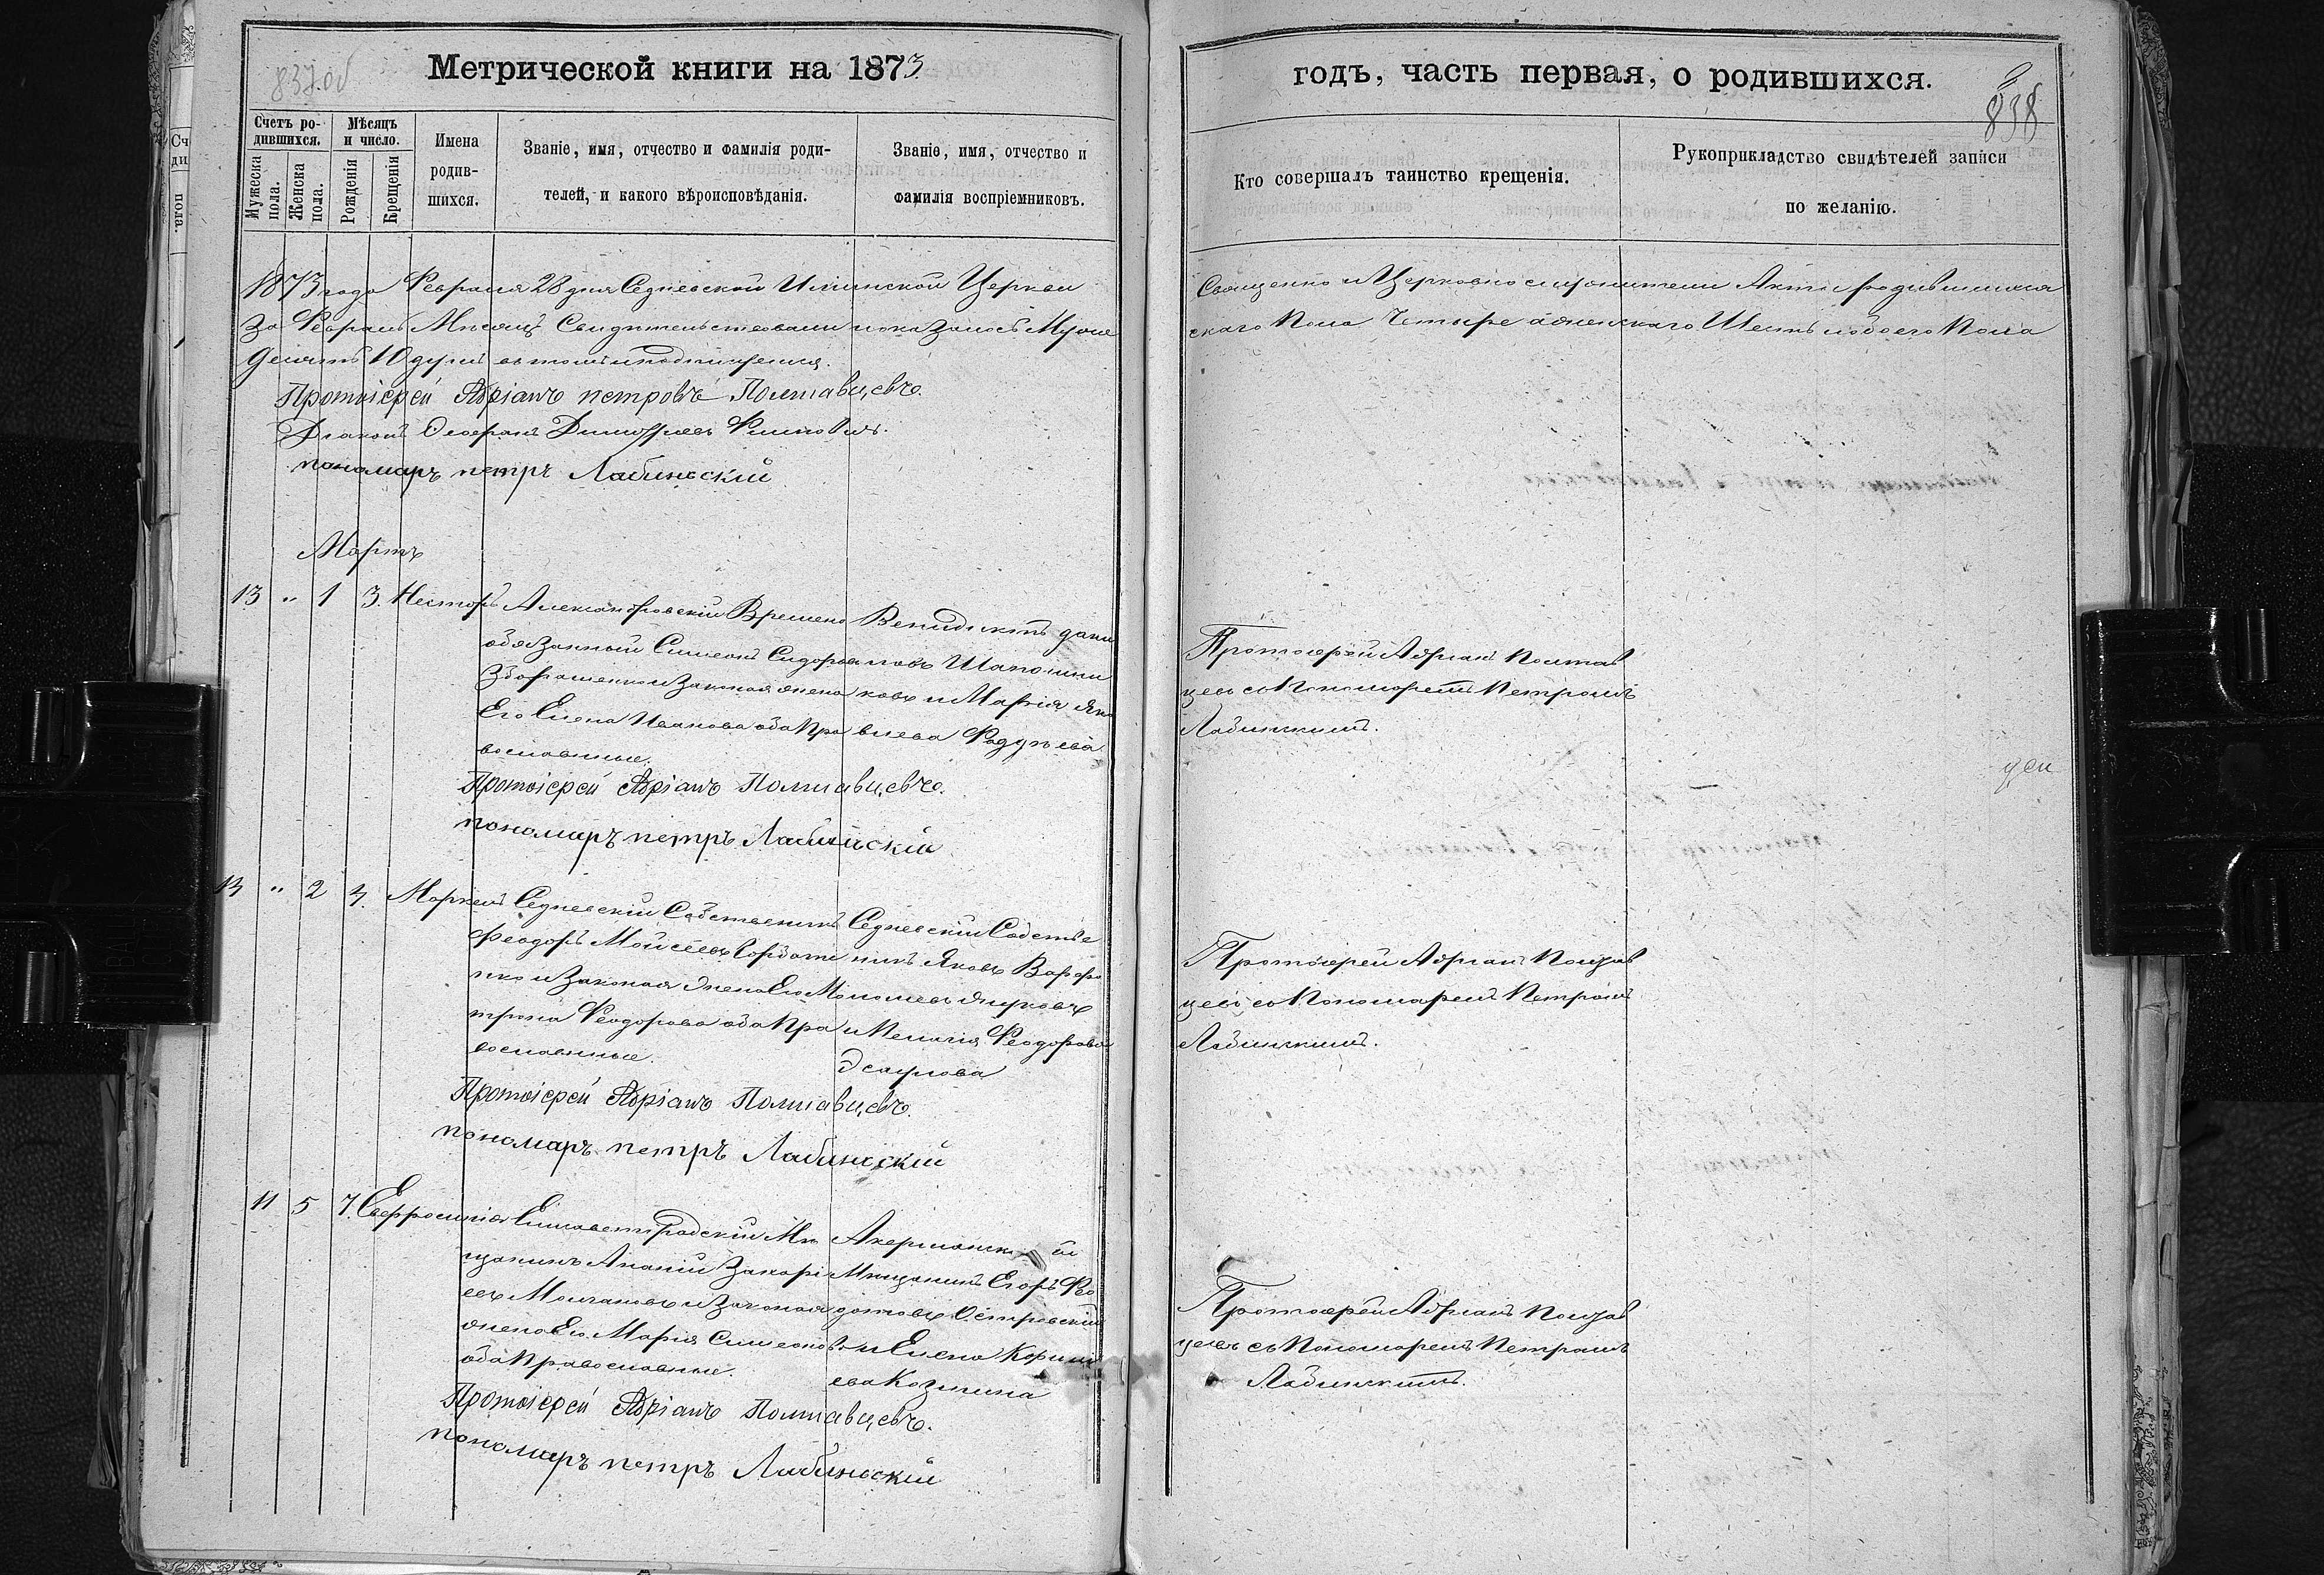 837 об
Метрической книги на 1873
Счетъ ро-
дившихся.
Мѣсяцъ
и число.
Мужеска
пола.
Женска
пола.
Рожденія
Крещенія
Имена
родив-
шихся.
Званіе, имя, отчество и фамилія роди-
телей, и какого вѣроисповѣданія.
Званіе, имя, отчество и
фамилія воспріемниковъ.
1873 года Февраля 28 дня Седневской Церкви
за Февраль Месяцъ Свидительствовали показалось Муже
десять 10 душъ въ томъ и подпишемся.
Протоіерей Адріанъ петровъ Полтавцевъ.
Дьяконъ
пономаръ петръ Лабинский
Мартъ
13 " 1 3. Несторъ Александровскій Времено
обязанный Симеонъ Сидоровъ
и законая жена
Его Елена Иванова оба Пра
вославные.
Венидиктъ Дани
ловъ Шапошни
ковъ и Марія Яко
влева
Протоіерей Адріанъ Полтавцевъ.
пономаръ петръ Лабинский
13 " 2 3. Маркелъ Седневскій Собственикъ
Феодоръ Мойсеевъ Горбате
нко и Законая жена Его Ма
трона Феодорова оба Пра
вославные.
Седневскій Собстве
никъ Яковъ Варфо
ломеевъ
и Пелагія Феодорова
Протоіерей Адріанъ Полтавцевъ.
пономаръ петръ Лабинский
11 5 7. Евфросинія Елисаветградскій Ме
щанинъ Ананій Захарі
евъ Молчановъ и Законая
жена Его Марія Симеонова
оба Православные.
Акерманский
Мещанинъ Егоръ Фео
дотовъ Островский
и Елена Корнил
ева Козмина
Протоіерей Адріанъ Полтавцевъ.
пономаръ петръ Лабинский
годъ, часть первая, о родившихся.
838
Кто совершалъ таинство крещенія.
Рукоприкладство свидѣтелей записи
по желанію.
Священно и Церковно служители Акти родившихся
скаго Пола Четыре а женскаго Шесть обоего Пола
Протоіерей Адріанъ Полтав
цевъ съ Пономаремъ Петромъ
Лабинскимъ.
Протоіерей Адріанъ Полтав
цевъ съ Пономаремъ Петромъ
Лабинскимъ.
Протоіерей Адріанъ Полтав
цевъ съ Пономаремъ Петромъ
Лабинскимъ.